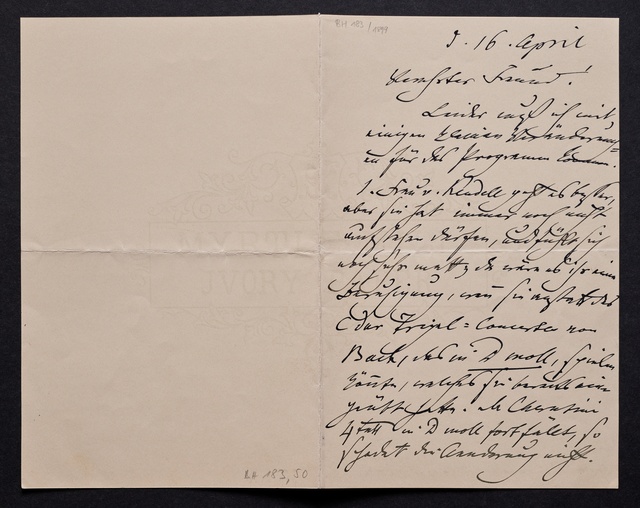 RH 183/1899
J. 16. April
Verehrter Freund!
Leider muß ich mit
einigen kleinen Veränderung=
en für das Programm
1. Frau v. Keudell geht es besser,
aber sie hat immer noch nicht
aufstehen dürfen, und fühlt sich
noch sehr matt, da wäre es ihr eine
Beruhigung, wenn sie anstatt des
C dur Tripel=Concertes von
Bach, das in D moll, spielen
könnte, welches sie bereits ein
geübt hatte. als Cherubini
4tett in D moll fortfällt, so
schadet die Aenderung nicht.
RH 183,50